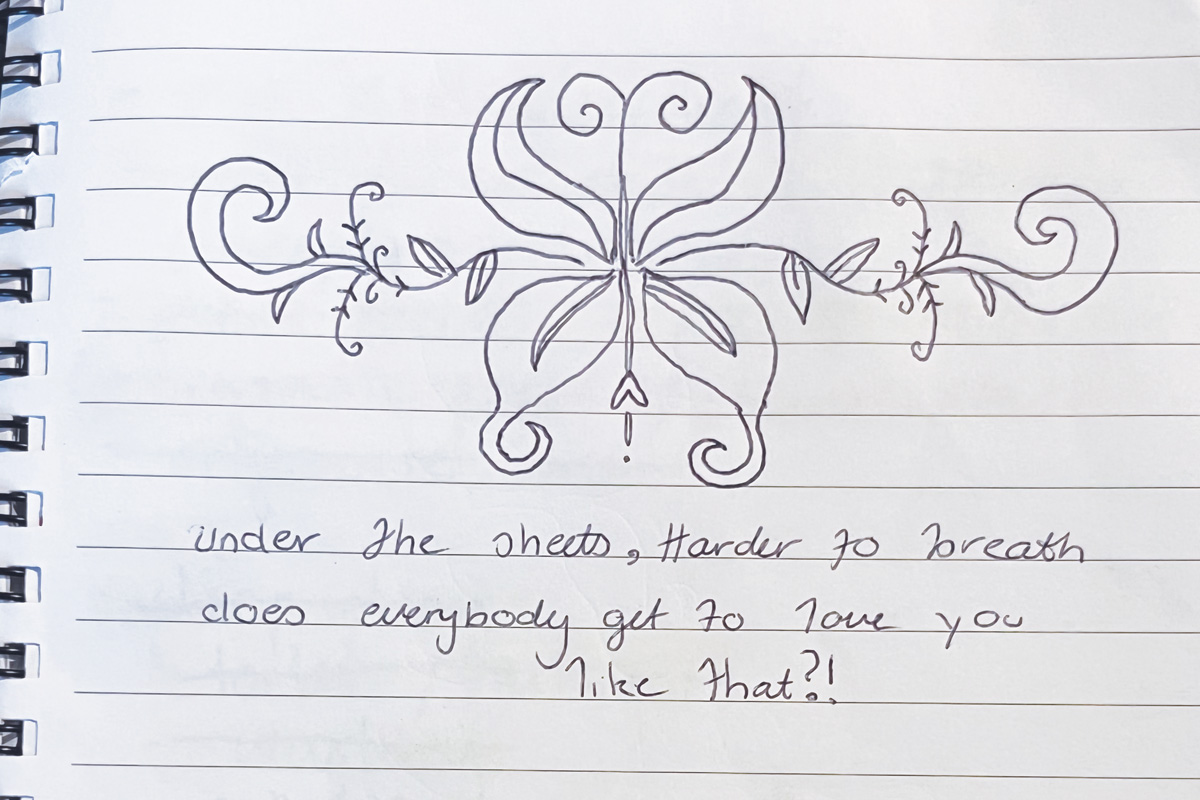 under the sheets, Harder to breath
does everybody get to love you
like that?!